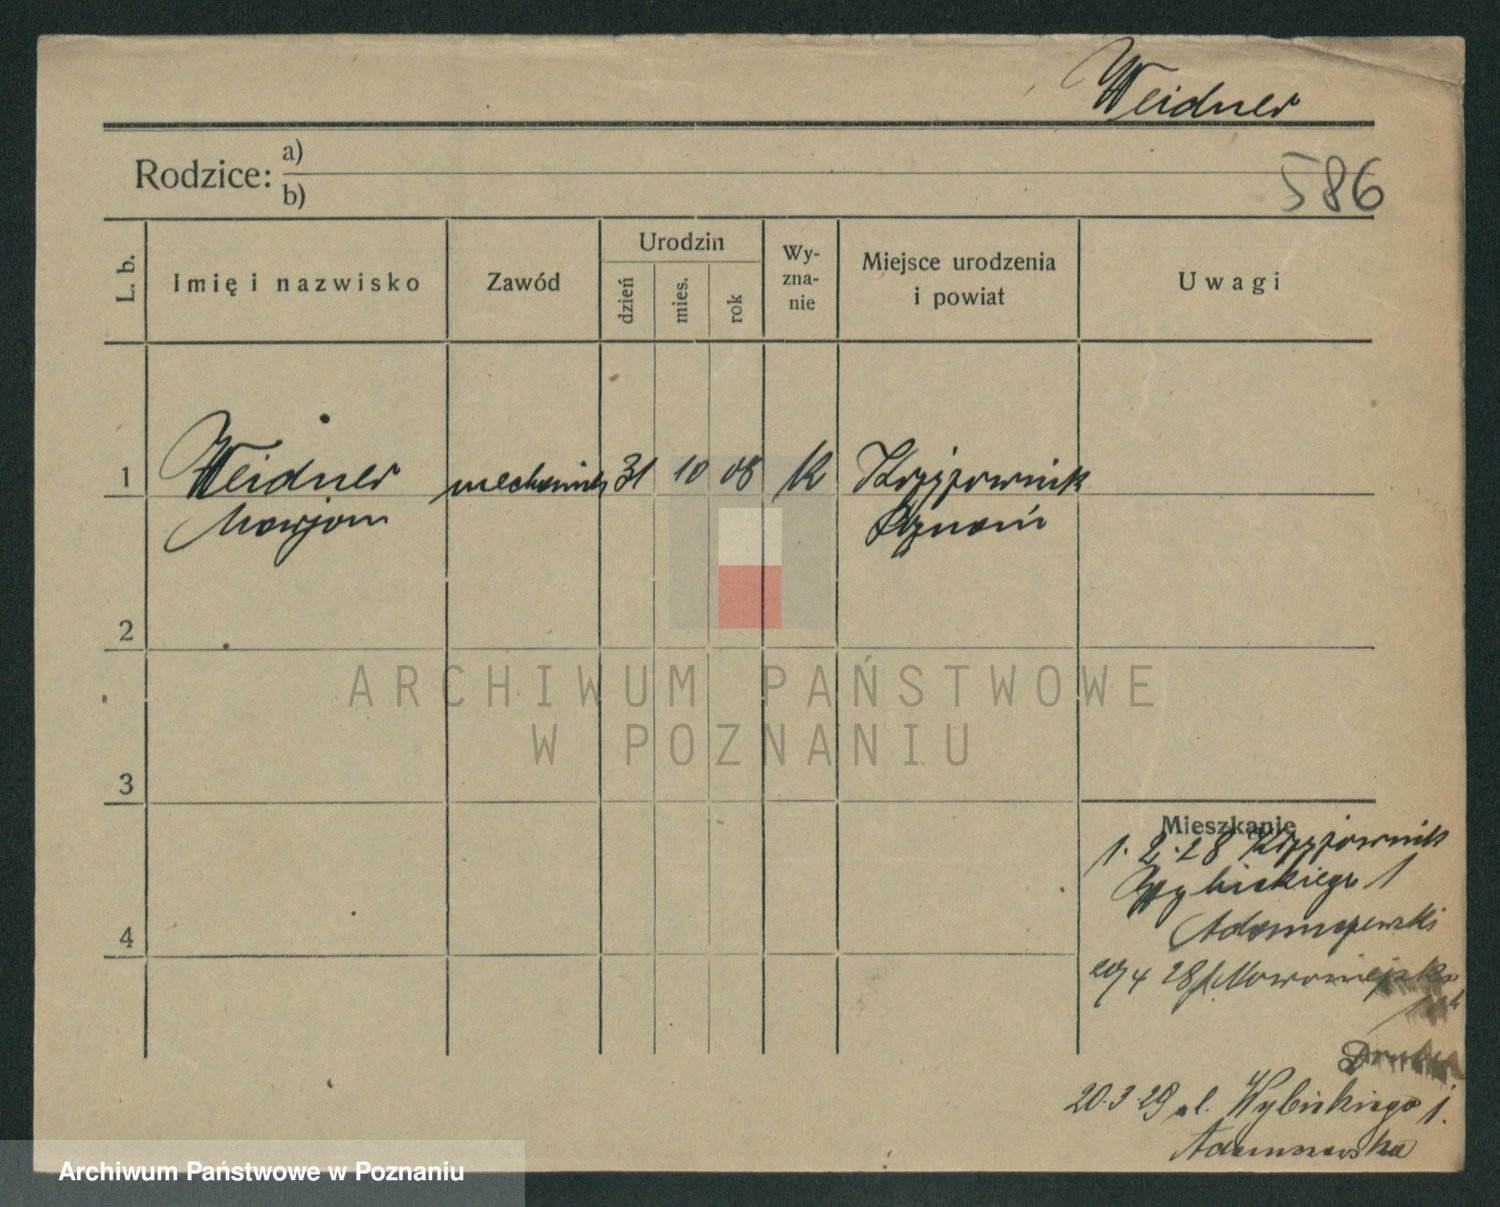 Weidner
586
Rodzice: a)
b)
L. b.
Imię i nazwisko
Zawód
Urodzin
dzień
mies.
rok
Wy-
zna-
nie
Miejsce urodzenia
i powiat
Uwagi
1 Weidner mechanik 31 10 08 K Krzyżownik
Marjan Poznań
2
3
4
Mieszkanie
1. 2. 28 Krzyżownik
Wybickiego 1
Adamszewski
20/4 28
20.3.29 ul. Wybickiego 1.
Adamszewska
ARCHIWUM PAŃSTWOWE
W POZNANIU
Archiwum Państwowe w Poznaniu